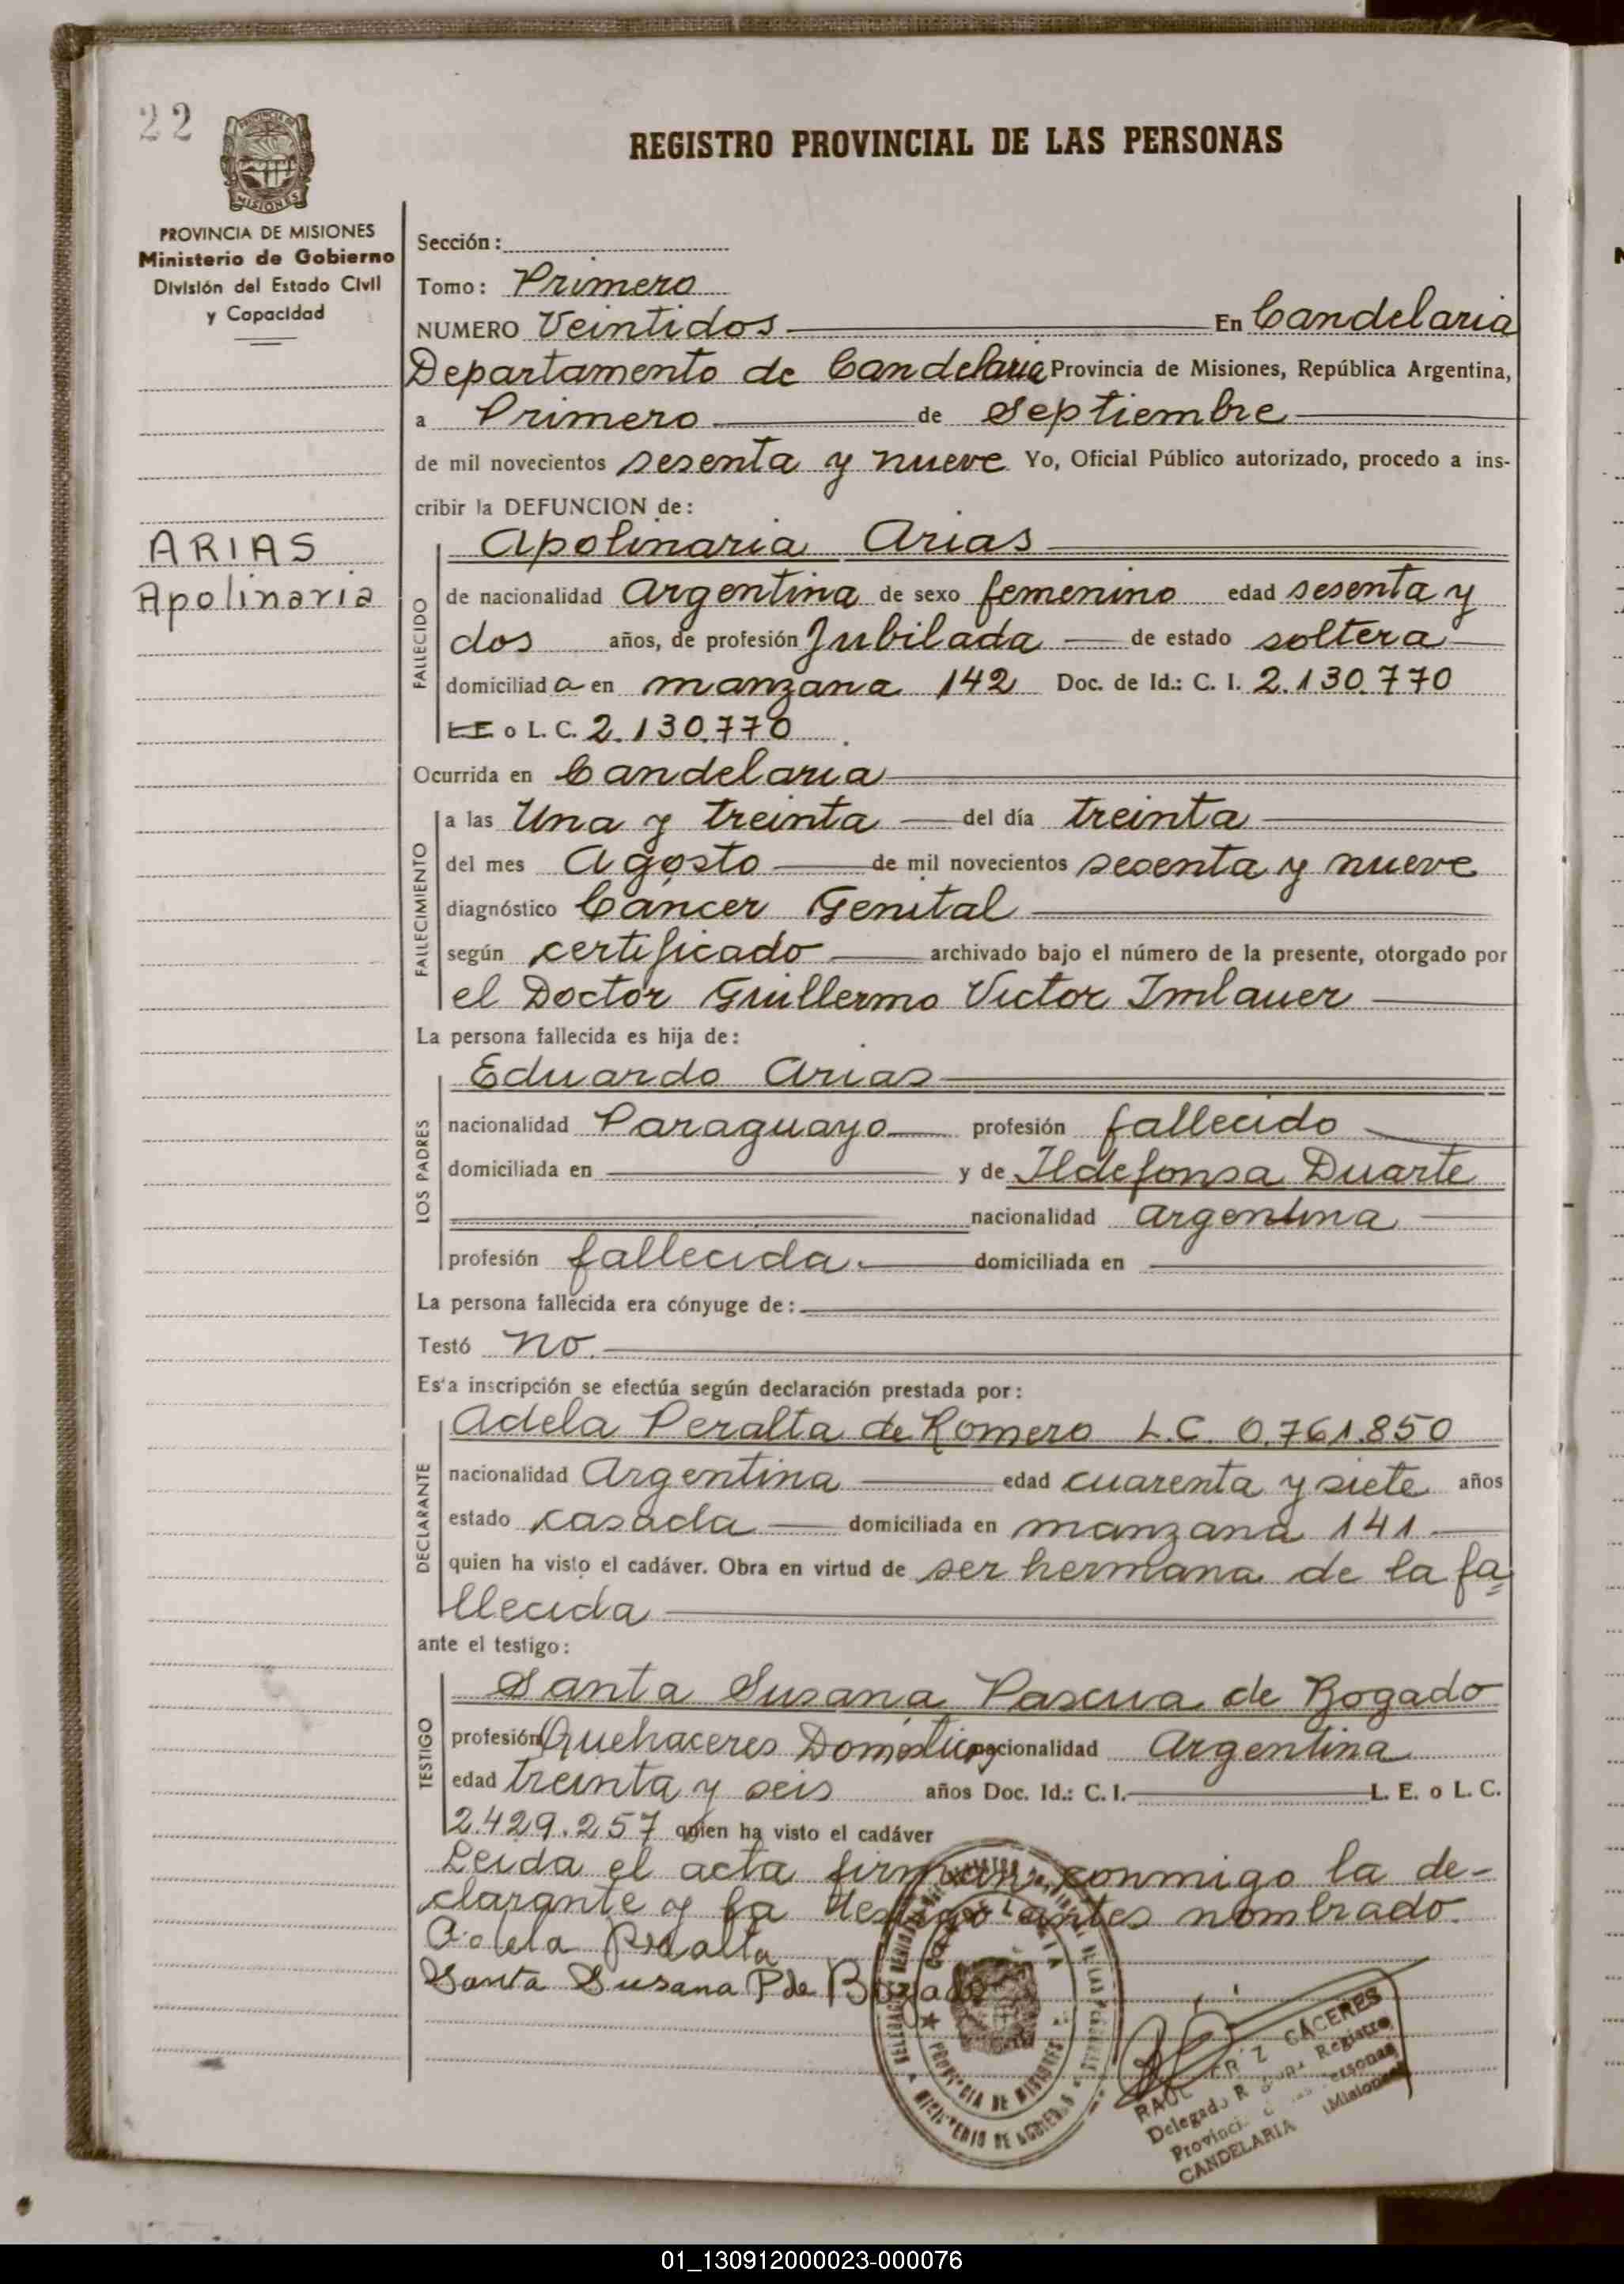 22
REGISTRO PROVINCIAL DE LAS PERSONAS
PROVINCIA DE MISIONES
Ministerio de Gobierno
División del Estado Civil
y Capacidad
ARIAS
Apolinaria
Sección:
Tomo: Primero
NUMERO Veintidos En Candelaria
Departamento de Candelaria Provincia de Misiones, República Argentina,
a Primero de Septiembre
de mil novecientos sesenta y nueve Yo, Oficial Público autorizado, procedo a ins-
cribir la DEFUNCION de:
Apolinaria Arias
FALLECIDO
de nacionalidad Argentina de sexo femenino edad sesenta y
dos años, de profesión Jubilada de estado soltera
domiciliad a en manzana 142 Doc. de Id.: C. I. 2.130.770
L E o L. C. 2.130.770
Ocurrida en Candelaria
FALLECIMIENTO
a las Una y treinta del día treinta
del mes Agosto de mil novecientos sesenta y nueve
diagnóstico Cáncer Genital
según certificado archivado bajo el número de la presente, otorgado por
el Doctor Guillermo Victor Imlauer
La persona fallecida es hija de:
LOS PADRES
Eduardo Arias
nacionalidad Paraguayo profesión fallecido
domiciliada en y de Ildefonsa Duarte
nacionalidad argentina
profesión fallecida. domiciliada en
La persona fallecida era cónyuge de:
Testó no.
Esta inscripción se efectúa según declaración prestada por:
DECLARANTE
Adela Peralta de Romero L.C. 0.761.850
nacionalidad Argentina edad cuarenta y siete años
estado casada domiciliada en manzana 141
quien ha visto el cadáver. Obra en virtud de ser hermana de la fa
llecida
ante el testigo:
TESTIGO
Santa Susana Pascua de Bogado
profesión Quehaceres Domésticos nacionalidad Argentina
edad treinta y seis años Doc. Id.: C. I. L. E. o L. C.
2.429.257 quien ha visto el cadáver
Leida el acta firman conmigo la de-
clarante y la testigo antes nombrado.
Adela Peralta
Santa Susana P de Bogado
PROVINCIA DE MISIONES
MINISTERIO DE GOBIERNO
RAUL CACERES
Delegado Registro
Provincial Personas
CANDELARIA (Misiones)
01_130912000023-000076